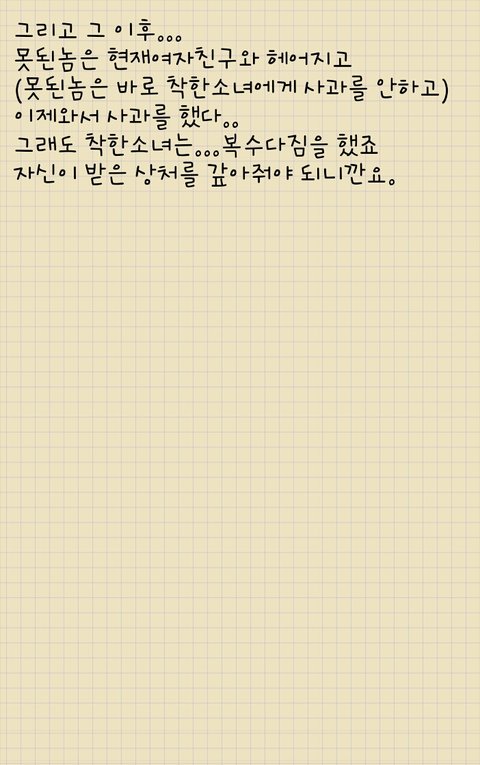 그리고 그 이후...
못된놈은 현재여자친구와 헤어지고
(못된놈은 바로 착한소녀에게 사과를 안하고)
이제와서 사과를 했다..
그래도 착한소녀는...복수다짐을 했죠
자신이 받은 상처를 갚아줘야 되니깐요.